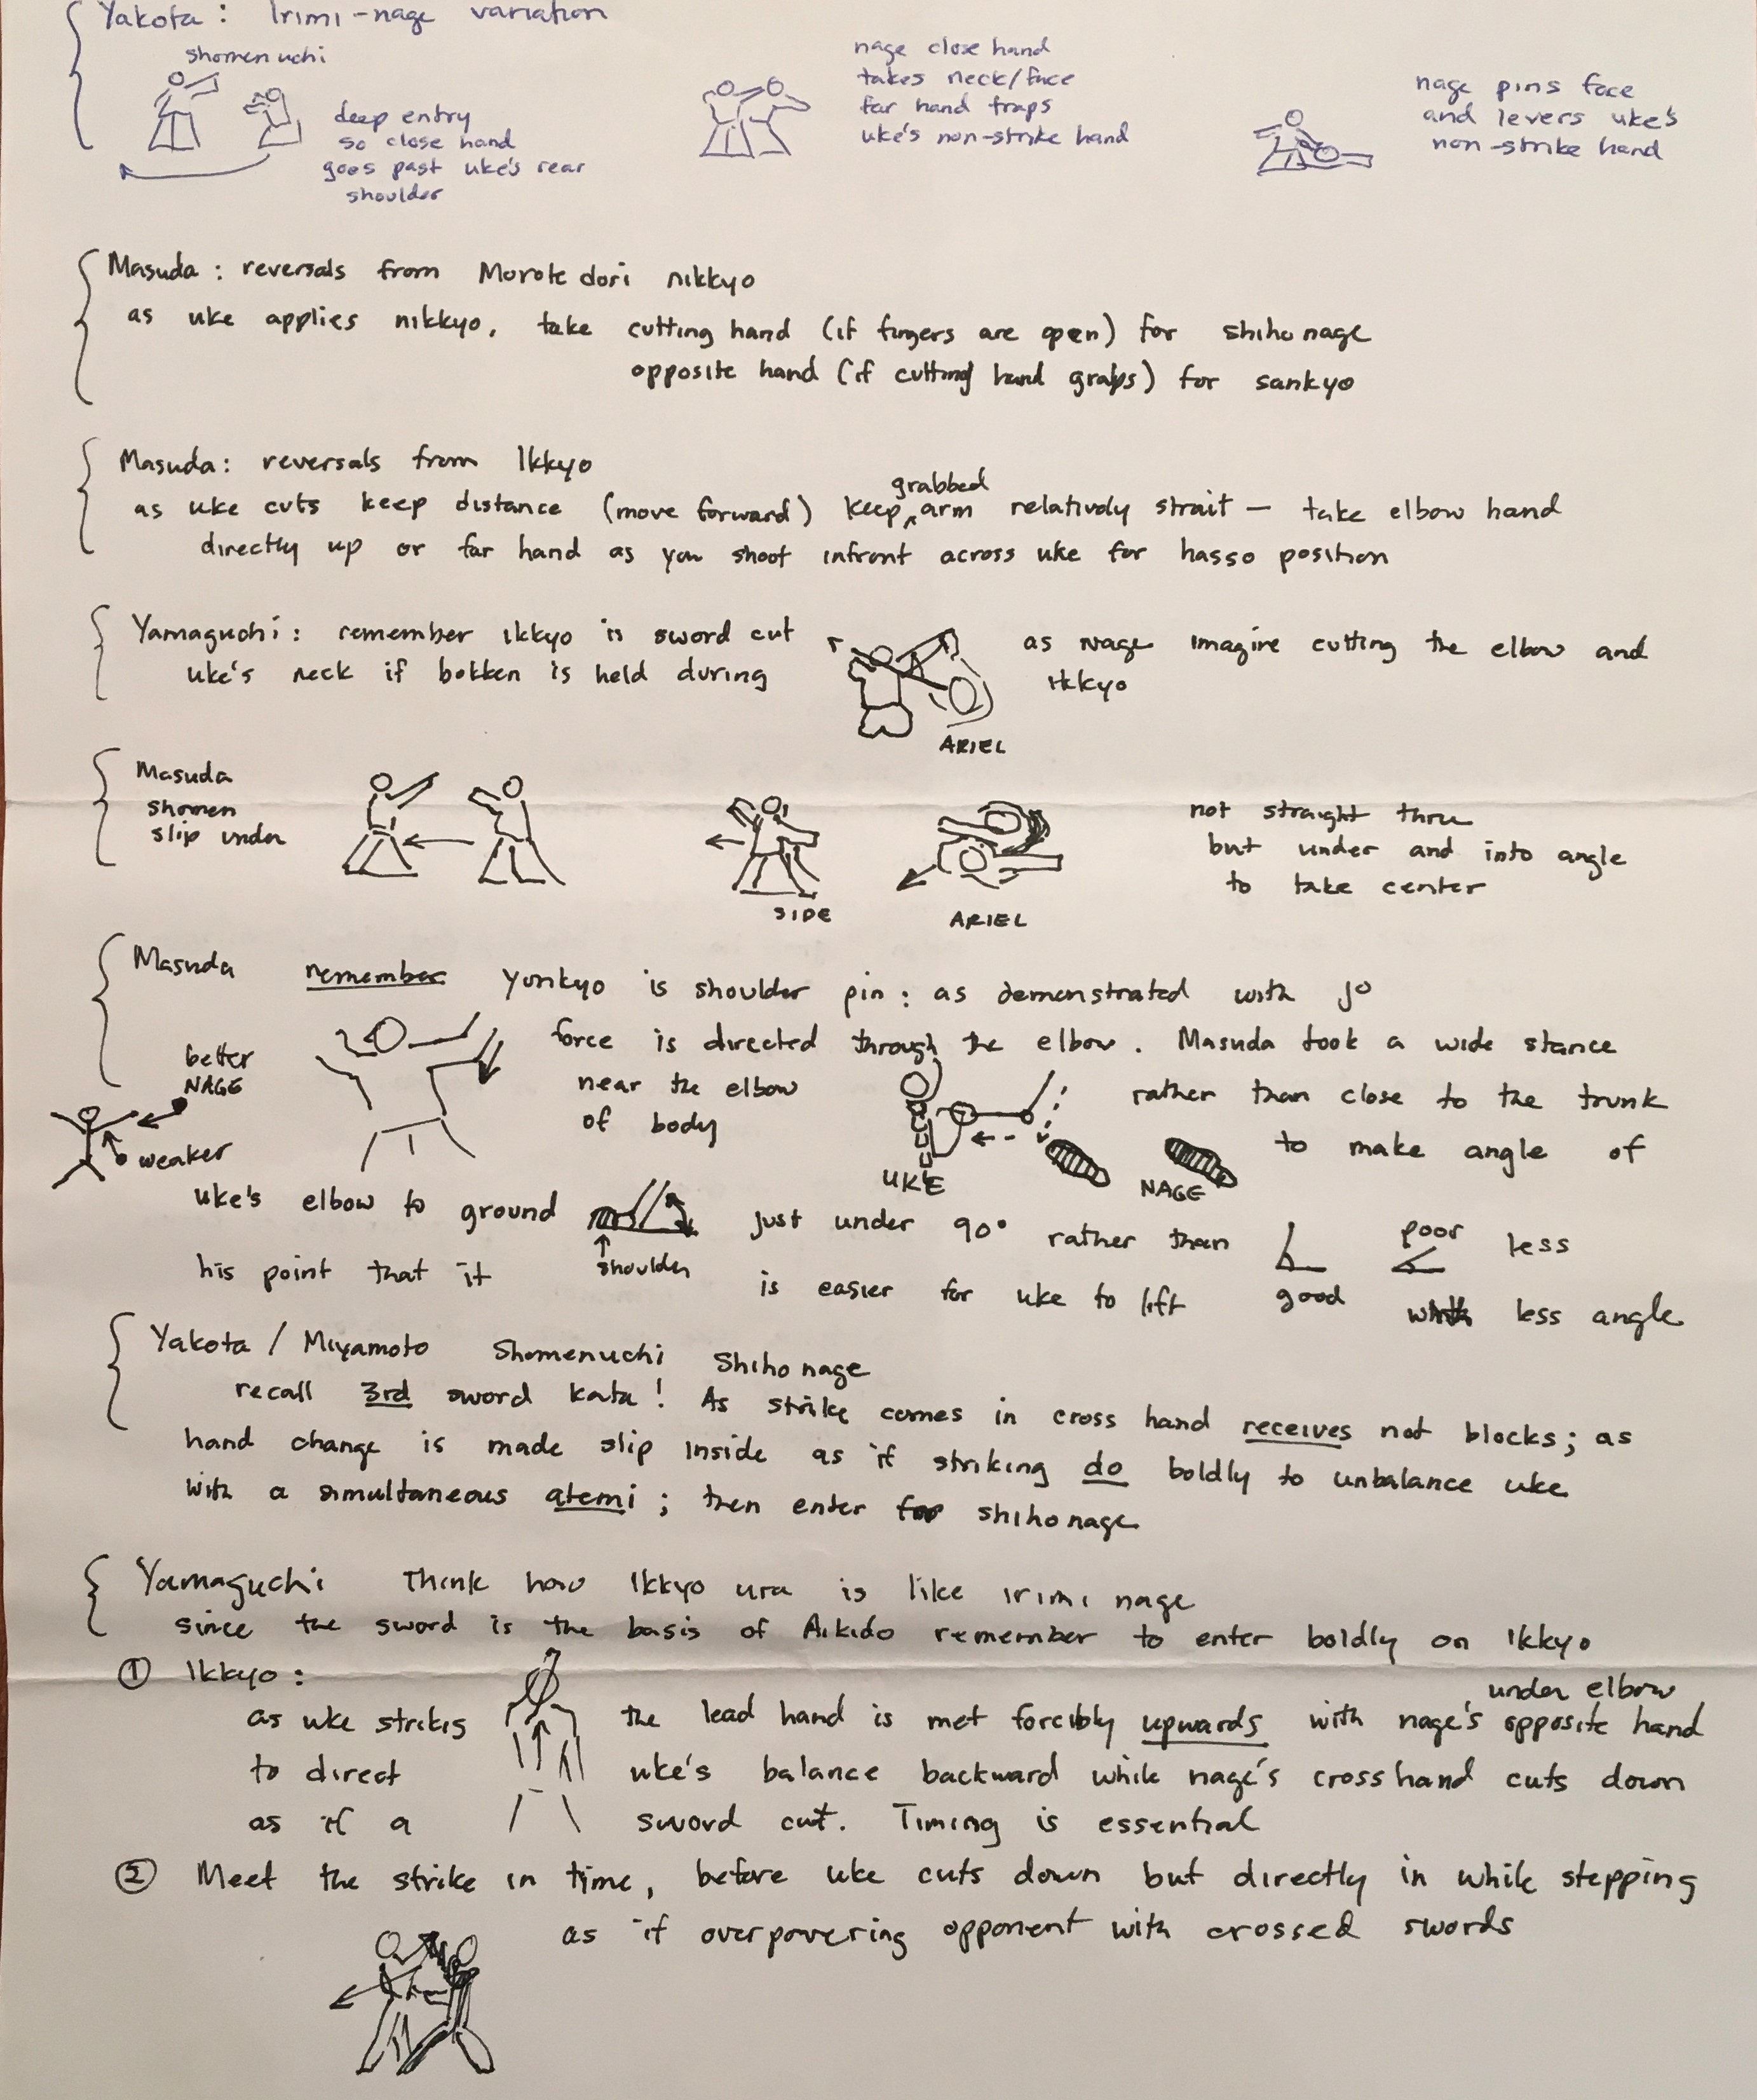 Yakota: Irimi-nage variation
shomenuchi
deep entry
so close hand
goes past uke's rear
shoulder
nage close hand
takes neck/face
far hand traps
uke's non-strike hand
nage pins face
and levers uke's
non-strike hand
Masuda: reversals from Morote dori nikkyo
as uke applies nikkyo, take cutting hand (if fingers are open) for shiho nage
opposite hand (if cutting hand grabs) for sankyo
Masuda: reversals from Ikkyo
grabbed
as uke cuts keep distance (move forward) keep arm relatively strait – take elbow hand
directly up or far hand as you shoot infront across uke for hasso position
Yamaguchi: remember Ikkyo is sword cut as nage imagine cutting the elbow and
uke's neck if bokken is held during Ikkyo
ARIEL
Masuda
shomen
slip under
SIDE
ARIEL
not straight thru
but under and into angle
to take center
Masuda remember Yonkyo is shoulder pin: as demonstrated with jo
force is directed through the elbow. Masuda took a wide stance
better
NAGE
weaker
near the elbow rather than close to the trunk
of body to make angle of
UKE
NAGE
uke's elbow to ground just under 90° rather than poor less
shoulder
good
his point that it is easier for uke to lift with less angle
Yakota / Miyamoto Shomenuchi Shiho nage
recall 3rd sword kata! As strike comes in cross hand receives not blocks; as
hand change is made slip inside as if striking do boldly to unbalance uke
with a simultaneous atemi; then enter for shihonage
Yamaguchi Think how Ikkyo ura is like irimi nage
since the sword is the basis of Aikido remember to enter boldly on Ikkyo
① Ikkyo:
under elbow
as uke strikes the lead hand is met forcibly upwards with nage's opposite hand
to direct uke's balance backward while nage's crosshand cuts down
as if a sword cut. Timing is essential
② Meet the strike in time, before uke cuts down but directly in while stepping
as if overpowering opponent with crossed swords